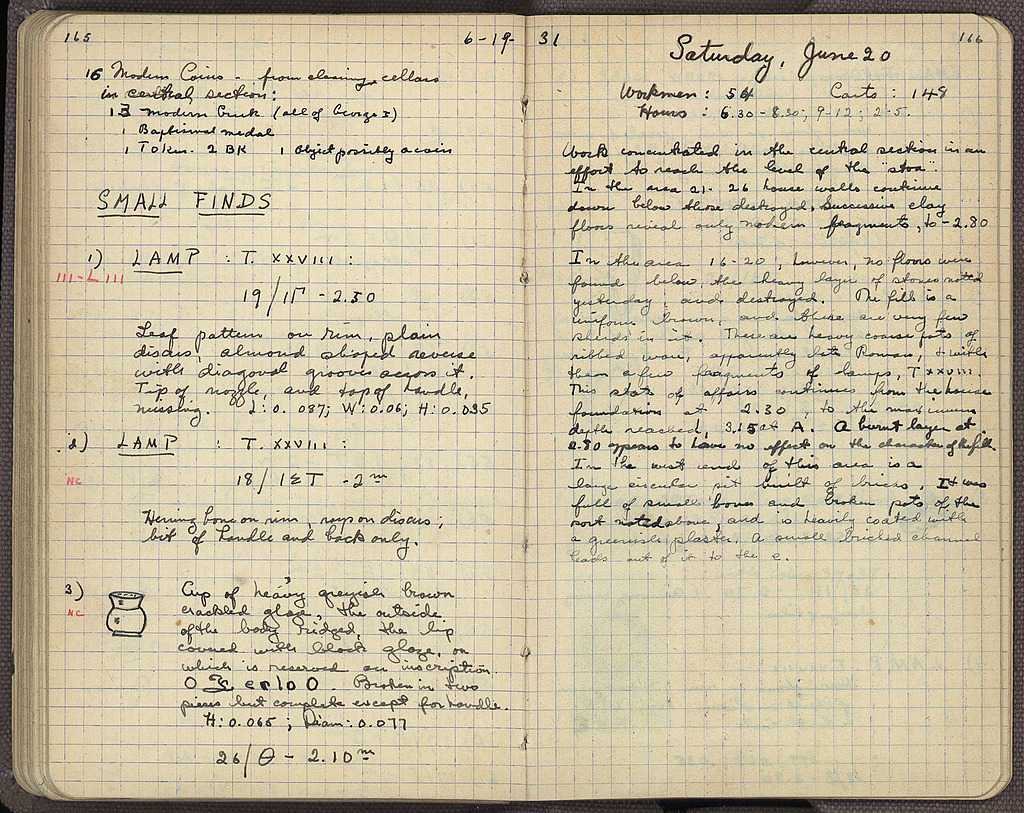 165
6-19-31
16 Modern Coins - from cleaning cellars
in central section:
13 modern Greek (all of George I)
1 Baptismal medal
1 Token. 2 BK 1 Object possibly a coin
SMALL FINDS
1) LAMP : T. XXVIII :
III-L 111
19/ΙΓ -2.50
Leaf pattern on rim, plain
discus, almond shaped reverse
with diagonal grooves across it.
Tip of nozzle, and top of handle,
missing. L: 0.087; W: 0.06; H: 0.035
2) LAMP : T. XXVIII :
NC
18/ -2 m
Herring bone on rim, rays on discus;
bit of handle and back only.
3) Cup of heavy greyish brown
NC
crackled glaze, the outside
of the body ridged, the lip
covered with black glaze, on
which is reserved an inscription
Broken in two
pieces but complete except for handle.
H: 0.065 ; Diam: 0.077
26/Θ - 2.10 m
166
Saturday, June 20
Workmen : 54 Carts : 148
Hours : 6.30 - 8.30; 9-12; 2-5.
Work concentrated in the central section in an
effort to reach the level of the "stoa".
In the area 21-26 house walls continue
down below those destroyed. Successive clay
floors reveal only modern fragments, to -2.80
In the area 16-20, however, no floors were
found below the heavy layer of stones noted
yesterday, and destroyed. The fill is a
uniform brown, and there are very few
sherds in it. There are heavy coarse pots of
ribbed ware, apparently late Roman, & with
them a few fragments of lamps, T XXVIII.
This state of affairs continues from the house
foundation at 2.30, to the maximum
depth reached, 3.15 at A. A burnt layer at
2.80 appears to have no effect on the character of the fill.
In the west end of this area is a
large circular pit built of bricks. It was
full of small bones and broken pots of the
sort noted above, and is heavily coated with
a greenish plaster. A small bricked channel
leads out of it to the e.